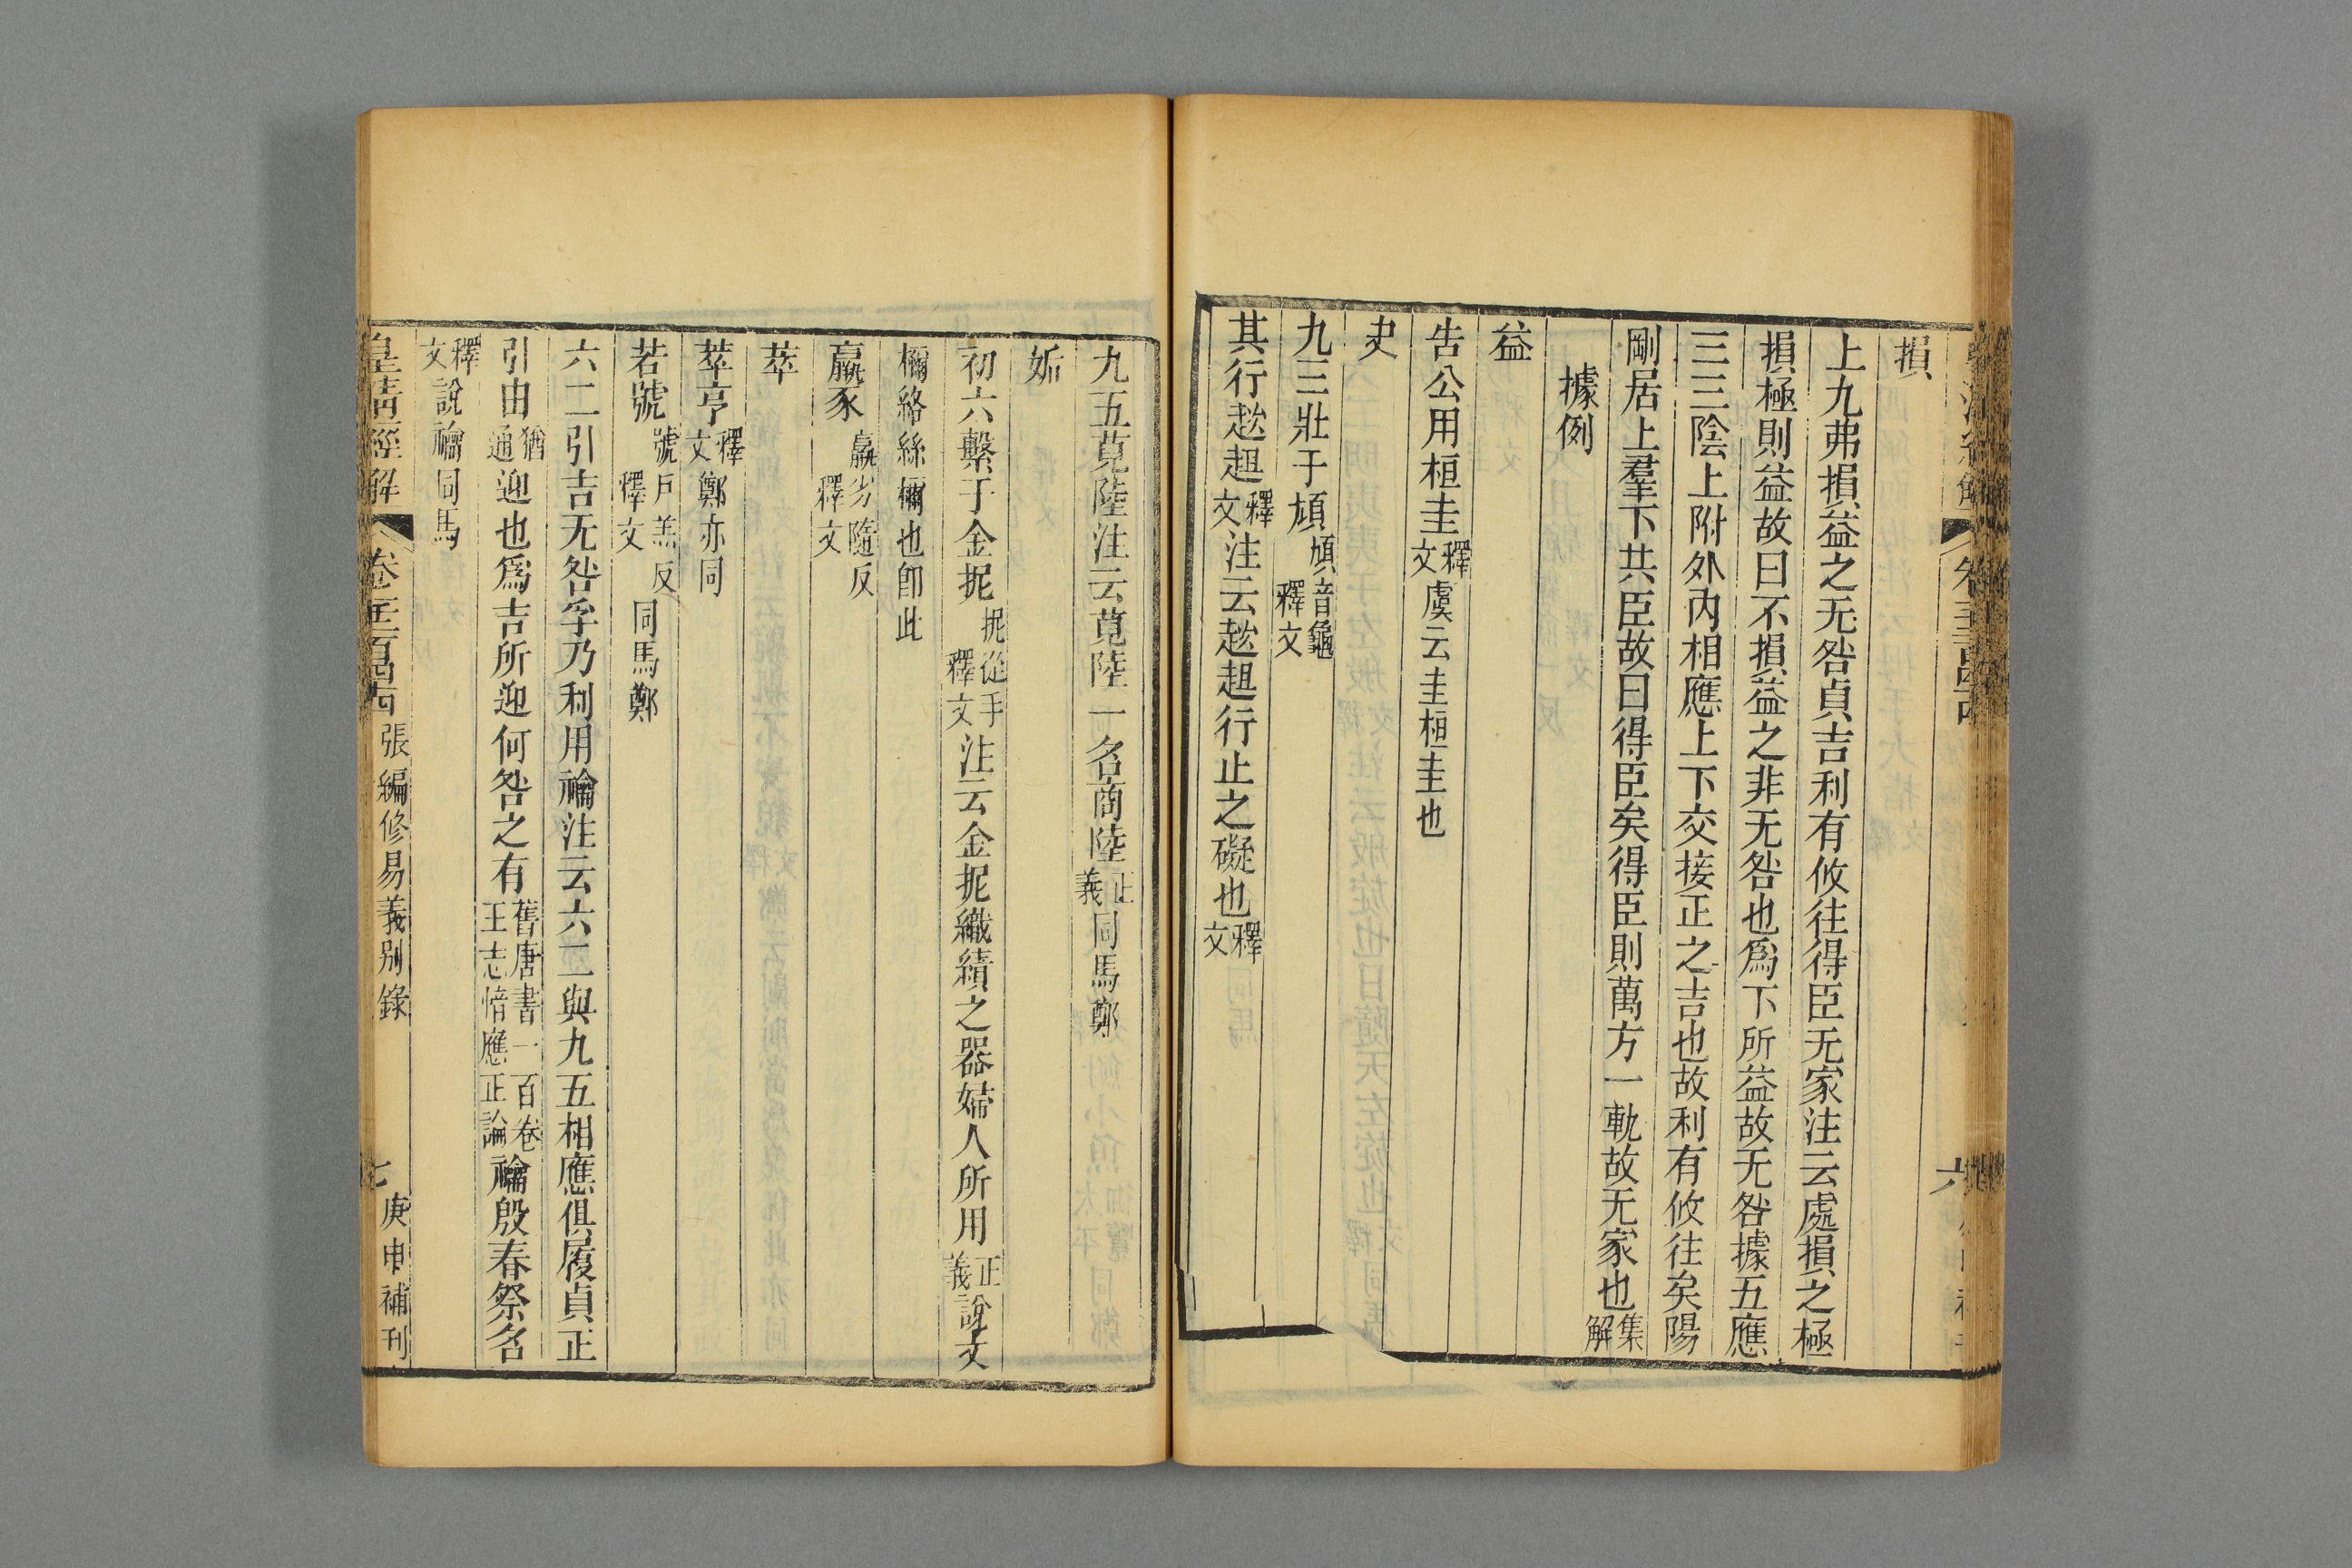 損
上九弗損益之无咎貞吉利有攸往得臣无家注云處損之極
損極則益故曰不損益之非无咎也爲下所益故无咎據五應
三三陰上附外內相應上下交接正之吉也故利有攸往矣陽
剛居上羣下共臣故曰得臣矣得臣則萬方一軌故无家也集解
據例
益
告公用桓圭釋文虞云圭桓圭也
夬
九三壯于頄頄音龜釋文
其行趑趄釋文注云趑趄行止之礙也釋文
六
九五莧陸注云莧陸一名商陸正義同馬鄭
姤
初六繫于金抳抳從手釋文注云金抳織績之器婦人所用正義說文
檷絡絲檷也卽此
羸豕羸劣隨反釋文
萃
萃亨釋文鄭亦同
若號號戶羔反釋文同馬鄭
六二引吉无咎孚乃利用禴注云六二與九五相應俱履貞正
引由猶通迎也爲吉所迎何咎之有舊唐書一百卷王志愔應正論禴殷春祭名
釋文說禴同馬
皇淸經解 張編修易義別錄 七 庚申補刊